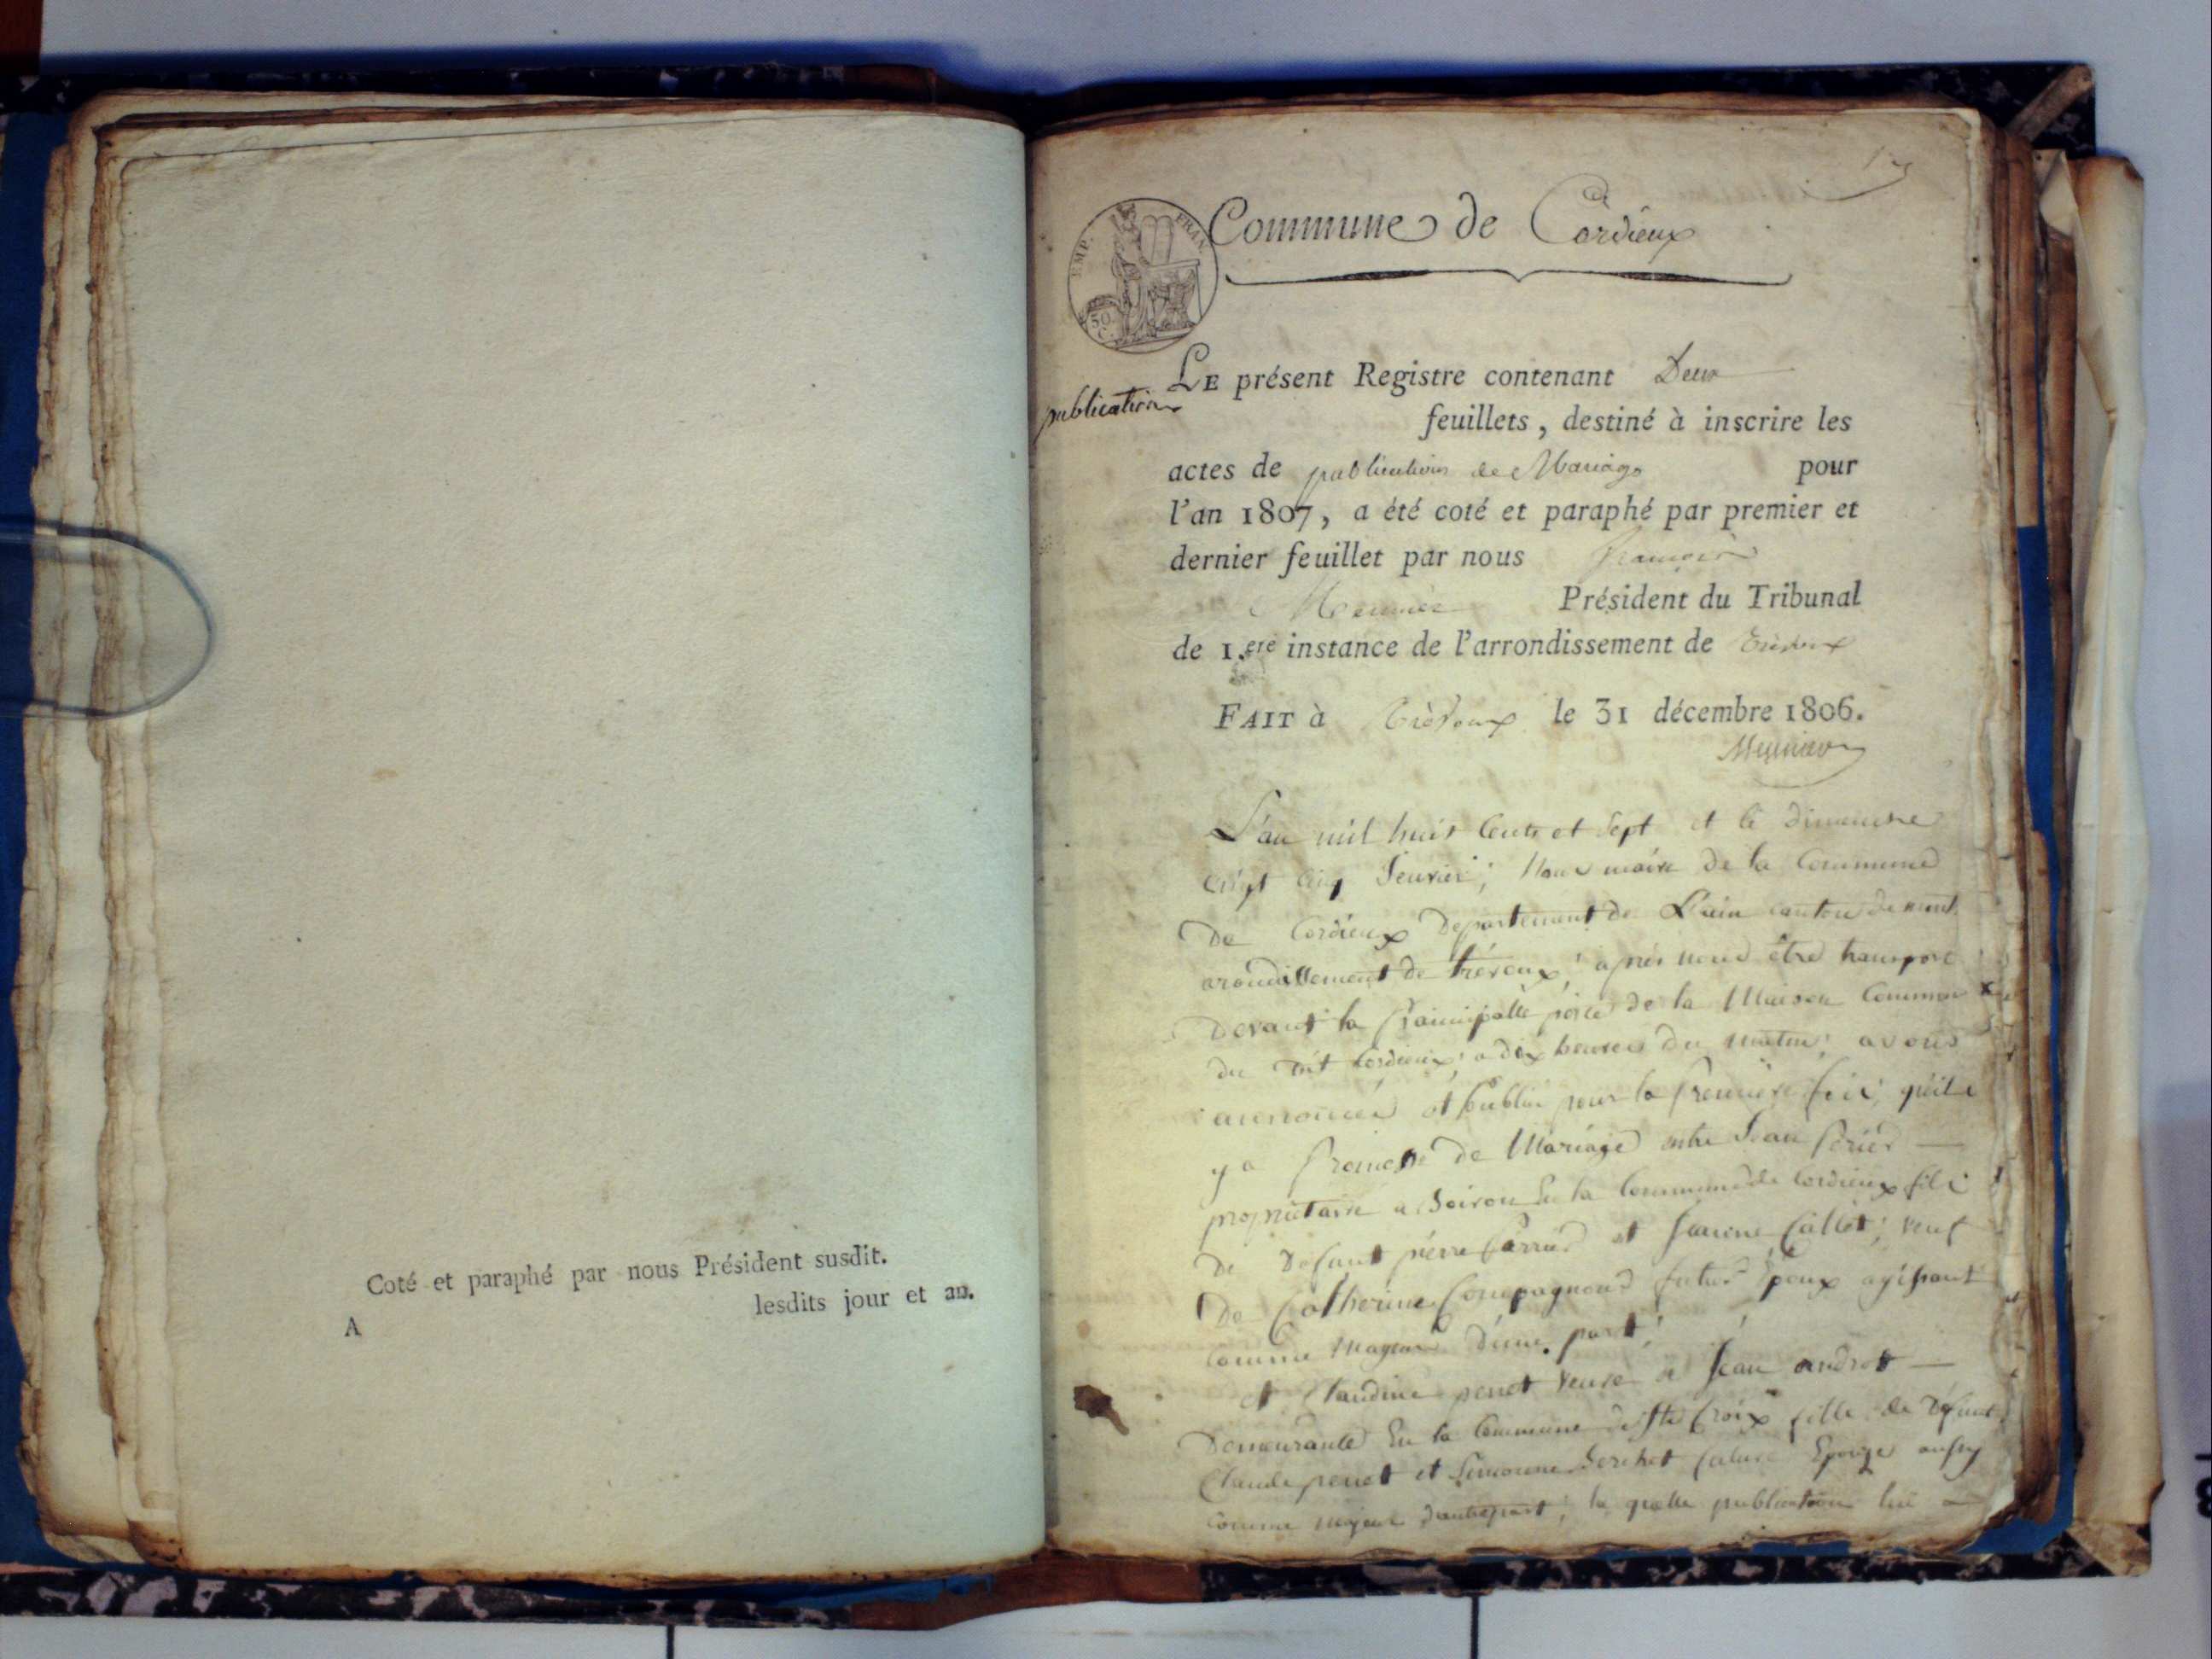 Coté et paraphé par nous Président susdit.
A lesdits jour et an.
EMP. FRAN.
50 C.
Commune de Cordieux
publication
LE présent Registre contenant Deux
feuillets, destiné à inscrire les
actes de publications de Mariage pour
l'an 1807, a été coté et paraphé par premier et
dernier feuillet par nous françois
Meunier Président du Tribunal
de 1.ere instance de l'arrondissement de Trévoux
FAIT à Trévoux le 31 décembre 1806.
L'an mil huit Cents et Sept et le dimenche
Vingt Cinq Jenvier; Nous maire de la Commune
De Cordieux Departement de L'ain canton de mont
arondissement de tréveux; après nous être transporté
Devant la principalle porte de la Maison Commune
du dit Cordieux; a dix heures du matin; avons
annoncée et publié pour la première fois; qu'il
y a promesse de Mariage entre Jean perier
propriétaire a En la Commune de Cordieux fils
De Défunt pierre et Jeanne Callet; veuf
De Catherine Compagnond futur Epoux agissant
Comme Mageur D'une part;
et Claudine perret Veuve a Jean androt
Demeurante En la Commune de Ste Croix fille de Défunt
Claude perret et Simonne future Epouze aussy
Comme majeur d'autrepart; la quelle publication lue a